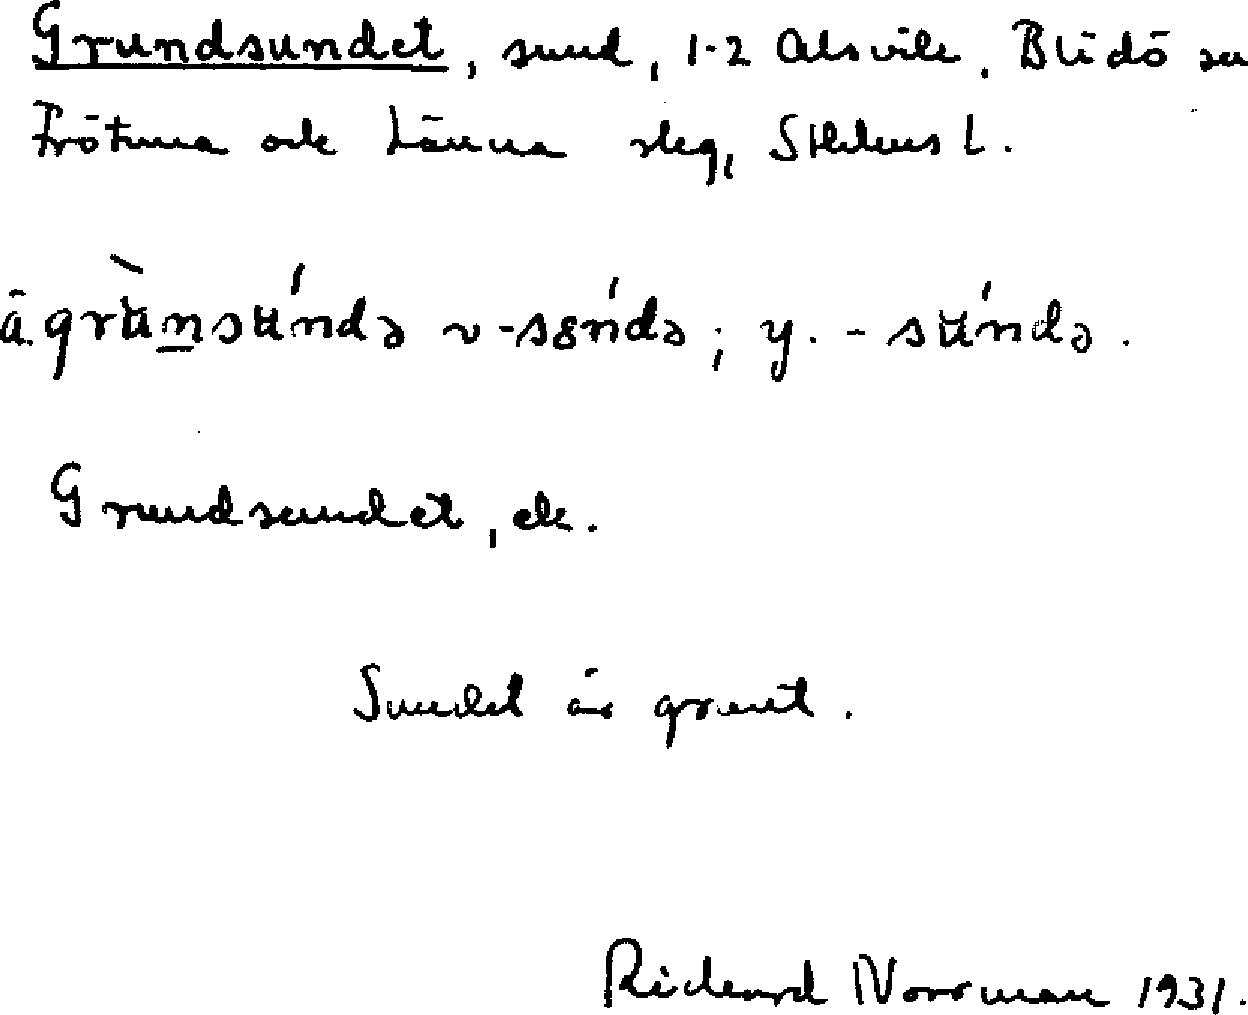 Grundsundet, sund, 1-2 Alsvik, Blidö sn
Frötuna och Länna skg, Sthlms l.
ä. grʉ̀nsʉ́ndə ~ -sɞ́ndə; y. -sʉ́ndə.
Grundsundet, ek.
Sundet är grunt.
Richard Norrman 1931.